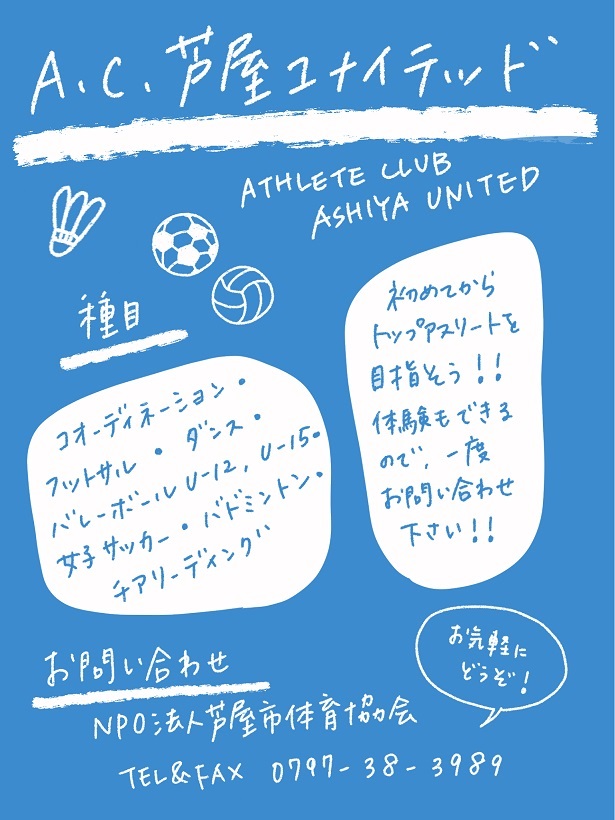 A.C.芦屋ユナイテッド
ATHLETE CLUB
ASHIYA UNITED
種目
コオーディネーション・
フットサル・ダンス・
バレーボールU-12,U-15・
女子サッカー・バドミントン・
チアリーディング
初めてから
トップアスリートを
目指そう!!
体験もできる
ので、一度
お問い合わせ
下さい!!
お問い合わせ
お気軽に
どうぞ!
NPO法人芦屋市体育協会
TEL&FAX 0797-38-3989